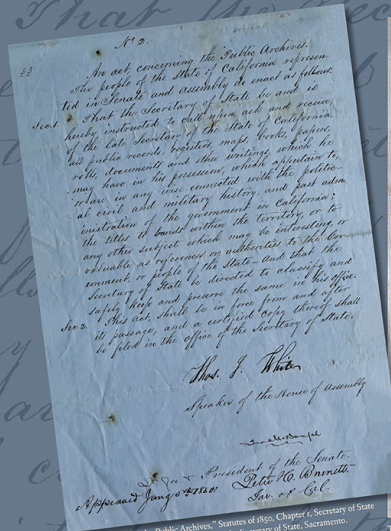 No 2.
33
An act concerning the Public Archives.
The people of the State of California represen-
ted in Senate and assembly do enact as follows.
Sec 1. That the Secretary of State be and is
hereby instructed to call upon, ask and receive,
of the late Secretary of the State of California
all public records, registers, maps, books, papers,
rolls, documents and other writings, which he
may have in his possession, which appertain to,
or are in any wise connected with the politic-
al civil and military history, and past adm-
inistration of the government in California;
the titles to lands within the territory, or to
any other subject which may be interesting or
valuable as references or authorities to the Gov-
ernment, or people of the State. And that the
Secretary of State be directed to classify and
safely keep and preserve the same in his office.
Sec 2. This Act, shall be in force from and after
its passage, and a certified copy thereof shall
be filed in the office of the Secretary of State.
Thos. J. White
Speaker of the House of Assembly
President of the Senate.
Approved Jany 5th 1850.
Peter H. Burnett
Gov. of Cal.
Public Archives," Statutes of 1850, Chapter 1, Secretary of State
Secretary of State, Sacramento.